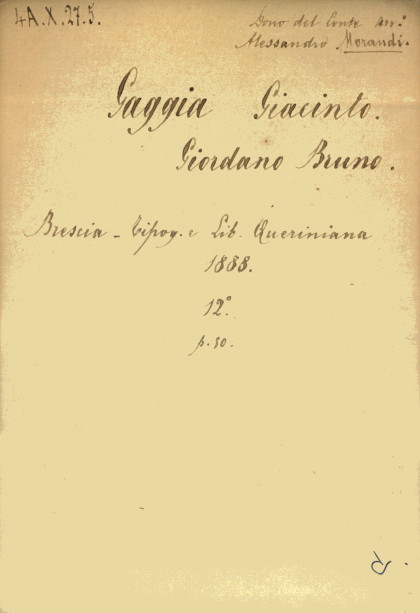 4A.X.27.5.
Dono del Conte
Alessandro Morandi.
Gaggia Giacinto.
Giordano Bruno.
Brescia - Tipog. e Lib. Queriniana
1888.
12°
p. 50.